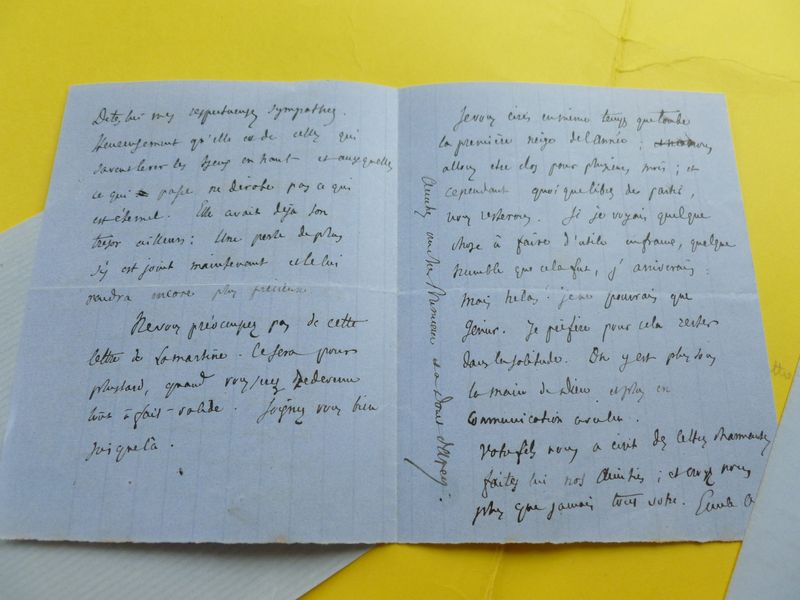 Dites lui mes respectueuses sympathies.
Heureusement qu'elle est de celles qui
savent lever les yeux en haut et auxquelles
ce qui passe ne dérobe pas ce qui
est éternel. Elle avait déjà son
trésor ailleurs: Une perle de plus
s'y est joint maintenant et le lui
rendra encore plus précieux
Ne vous préoccupez pas de cette
lettre de Lamartine. Ce sera pour
plus tard, quand vous serez redevenu
tout à fait valide. Soignez vous bien
jusque là.
Je vous écris en même temps que tombe
la première neige de l'année: nous
allons être clos pour plusieurs mois; et
cependant quoique libres de partir,
nous resterons. Si je voyais quelque
chose à faire d'utile en france, quelque
humble que cela fut, j'arriverais:
mais helas! je ne pourrais que
gemir. Je préfère pour cela rester
dans la solitude. On y est plus sous
la main de Dieu et plus en
communication avec lui.
Votre fils nous a écrit des lettres charmantes
faites lui nos amitiés; et croyez nous
plus que jamais tous votre. Emile